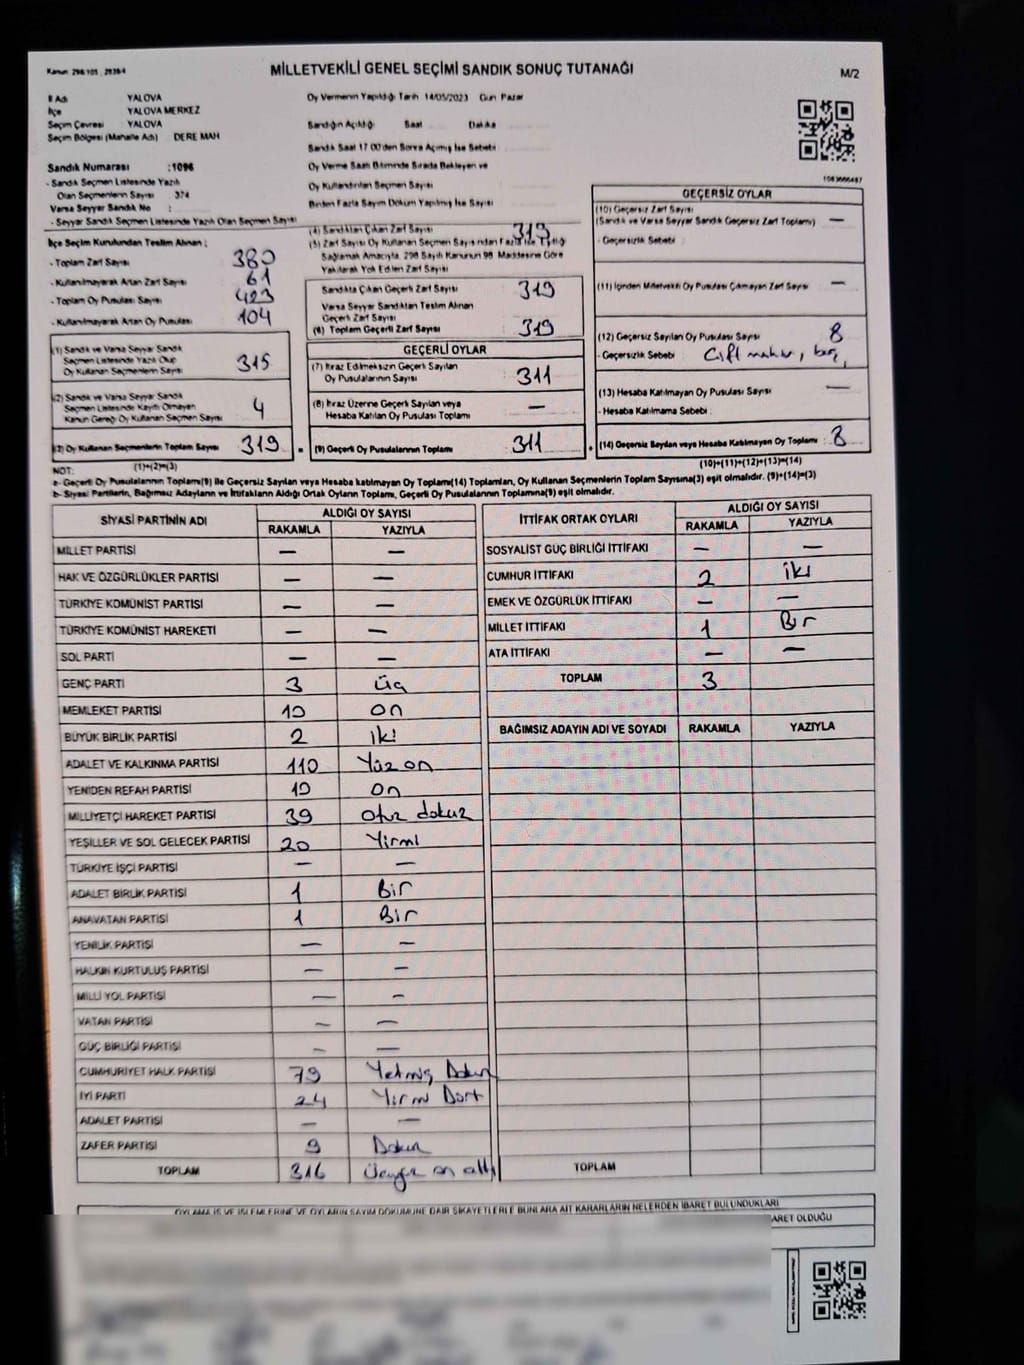 Kanun: 298/105 , 2839/4
MİLLETVEKİLİ GENEL SEÇİMİ SANDIK SONUÇ TUTANAĞI
M/2
İl Adı YALOVA
İlçe YALOVA MERKEZ
Seçim Çevresi YALOVA
Seçim Bölgesi (Mahalle Adı) DERE MAH
Oy Vermenin Yapıldığı Tarih 14/05/2023 Gün Pazar
Sandığın Açıldığı Saat Dakika
Sandık Saat 17.00'den Sonra Açılmış İse Sebebi
Oy Verme Saati Bitiminde Sırada Bekleyen ve
Oy Kullandırılan Seçmen Sayısı
Birden Fazla Sayım Döküm Yapılmış İse Sayısı
Sandık Numarası :1096
- Sandık Seçmen Listesinde Yazılı
Olan Seçmenlerin Sayısı 374
Varsa Seyyar Sandık No :
- Seyyar Sandık Seçmen Listesinde Yazılı Olan Seçmen Sayısı
İlçe Seçim Kurulundan Teslim Alınan ;
- Toplam Zarf Sayısı 380
- Kullanılmayarak Artan Zarf Sayısı 61
- Toplam Oy Pusulası Sayısı 423
- Kullanılmayarak Artan Oy Pusulası 104
(1) Sandık ve Varsa Seyyar Sandık
Seçmen Listesinde Yazılı Olup
Oy Kullanan Seçmenlerin Sayısı 315
(2) Sandık ve Varsa Seyyar Sandık
Seçmen Listesinde Kayıtlı Olmayan
Kanun Gereği Oy Kullanan Seçmen Sayısı 4
(3) Oy Kullanan Seçmenlerin Toplam Sayısı 319
(1)+(2)=(3)
(4) Sandıktan Çıkan Zarf Sayısı 319
(5) Zarf Sayısı Oy Kullanan Seçmen Sayısından Fazla İse Eşitliği
Sağlamak Amacıyla, 298 Sayılı Kanunun 98. Maddesine Göre
Yakılarak Yok Edilen Zarf Sayısı
Sandıkta Çıkan Geçerli Zarf Sayısı 319
Varsa Seyyar Sandıktan Teslim Alınan
Geçerli Zarf Sayısı
(6) Toplam Geçerli Zarf Sayısı 319
GEÇERLİ OYLAR
(7) İtiraz Edilmeksizin Geçerli Sayılan
Oy Pusulalarının Sayısı 311
(8) İtiraz Üzerine Geçerli Sayılan veya
Hesaba Katılan Oy Pusulası Toplamı —
(9) Geçerli Oy Pusulalarının Toplamı 311
GEÇERSİZ OYLAR
(10) Geçersiz Zarf Sayısı
(Sandık ve Varsa Seyyar Sandık Geçersiz Zarf Toplamı) —
- Geçersizlik Sebebi :
(11) İçinden Milletvekili Oy Pusulası Çıkmayan Zarf Sayısı —
(12) Geçersiz Sayılan Oy Pusulası Sayısı 8
- Geçersizlik Sebebi :
(13) Hesaba Katılmayan Oy Pusulası Sayısı —
- Hesaba Katılmama Sebebi :
(14) Geçersiz Sayılan veya Hesaba Katılmayan Oy Toplamı : 8
(10)+(11)+(12)+(13)=(14)
NOT:
a- Geçerli Oy Pusulalarının Toplamı(9) ile Geçersiz Sayılan veya Hesaba katılmayan Oy Toplamı(14) Toplamları, Oy Kullanan Seçmenlerin Toplam Sayısına(3) eşit olmalıdır. (9)+(14)=(3)
b- Siyasi Partilerin, Bağımsız Adayların ve İttifakların Aldığı Ortak Oyların Toplamı, Geçerli Oy Pusulalarının Toplamına(9) eşit olmalıdır.
SİYASİ PARTİNİN ADI ALDIĞI OY SAYISI
RAKAMLA YAZIYLA
MİLLET PARTİSİ — —
HAK VE ÖZGÜRLÜKLER PARTİSİ — —
TÜRKİYE KOMÜNİST PARTİSİ — —
TÜRKİYE KOMÜNİST HAREKETİ — —
SOL PARTİ — —
GENÇ PARTİ 3 üç
MEMLEKET PARTİSİ 10 on
BÜYÜK BİRLİK PARTİSİ 2 iki
ADALET VE KALKINMA PARTİSİ 110 Yüz on
YENİDEN REFAH PARTİSİ 10 on
MİLLİYETÇİ HAREKET PARTİSİ 39 otuz dokuz
YEŞİLLER VE SOL GELECEK PARTİSİ 20 Yirmi
TÜRKİYE İŞÇİ PARTİSİ — —
ADALET BİRLİK PARTİSİ 1 Bir
ANAVATAN PARTİSİ 1 Bir
YENİLİK PARTİSİ — —
HALKIN KURTULUŞ PARTİSİ — —
MİLLİ YOL PARTİSİ — —
VATAN PARTİSİ — —
GÜÇ BİRLİĞİ PARTİSİ — —
CUMHURİYET HALK PARTİSİ 79 Yetmiş Dokuz
İYİ PARTİ 24 Yirmi Dört
ADALET PARTİSİ — —
ZAFER PARTİSİ 9 Dokuz
TOPLAM 316 üçyüz on altı
İTTİFAK ORTAK OYLARI ALDIĞI OY SAYISI
RAKAMLA YAZIYLA
SOSYALİST GÜÇ BİRLİĞİ İTTİFAKI — —
CUMHUR İTTİFAKI 2 iki
EMEK VE ÖZGÜRLÜK İTTİFAKI — —
MİLLET İTTİFAKI 1 Bir
ATA İTTİFAKI — —
TOPLAM 3
BAĞIMSIZ ADAYIN ADI VE SOYADI RAKAMLA YAZIYLA
TOPLAM
OYLAMA İŞ VE İŞLEMLERİNE VE OYLARIN SAYIM DÖKÜMÜNE DAİR ŞİKAYETLERLE BUNLARA AİT KARARLARIN NELERDEN İBARET BULUNDUKLARI
ARET OLDUĞU